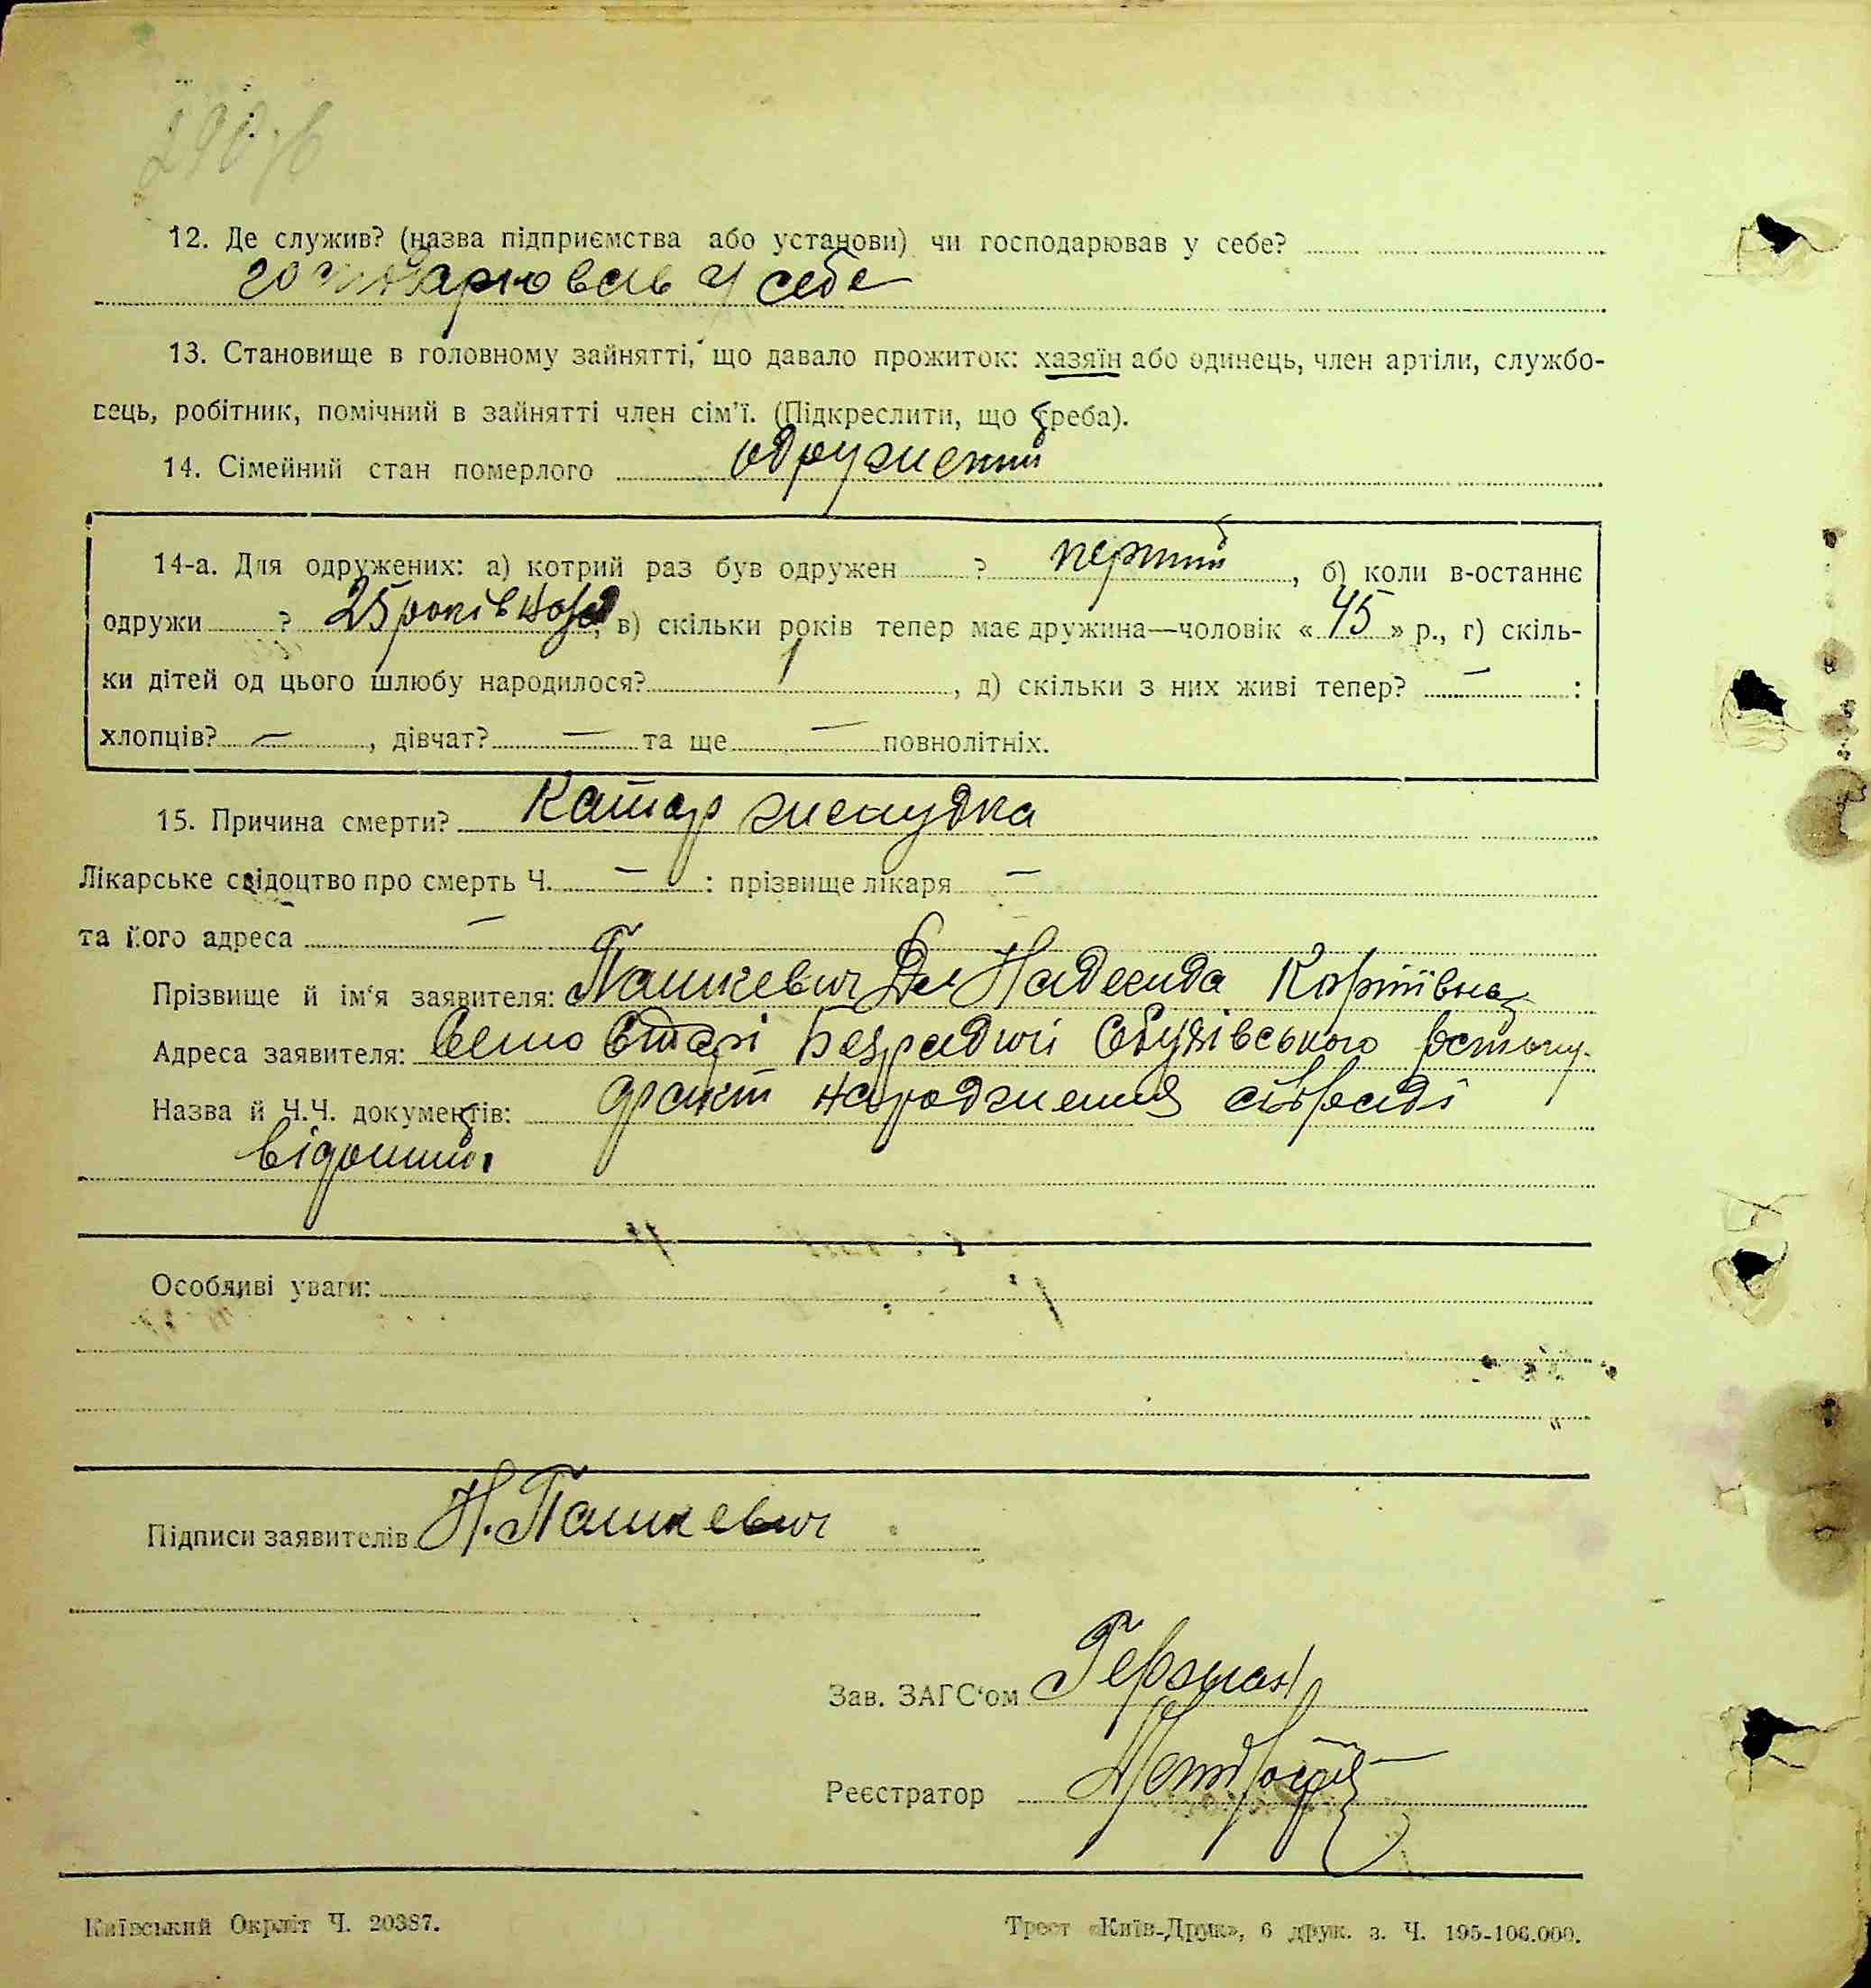 12. Де служив? (назва підприємства або установи) чи господарював у себе?
господарював у себе
13. Становище в головному зайнятті, що давало прожиток: хазяїн або одинець, член артіли, службо-
вець, робітник, помічний в зайнятті член сім'ї. (Підкреслити, що треба).
14. Сімейний стан померлого одружений
14-а. Для одружених: а) котрий раз був одружен ? перший, б) коли в-останнє
одружи ? 25 років назад, в) скільки років тепер має дружина—чоловік « 45 » р., г) скіль-
ки дітей од цього шлюбу народилося? , д) скільки з них живі тепер? — :
хлопців? — , дівчат? — та ще — повнолітніх.
15. Причина смерти? Катар желудка
Лікарське свідоцтво про смерть Ч. — : прізвище лікаря —
та його адреса —
Прізвище й ім'я заявителя: Пашкевич Надежда
Адреса заявителя: Село Старі Безрадичі Обухівського
Назва й Ч.Ч. документів: факт народження сільраді
відомий
Особливі уваги:
Підписи заявителів Н. Пашкевич
Зав. ЗАГС'ом
Реєстратор
Київський Окрліт Ч. 20387.
Трест «Київ-Друк», 6 друк. з. Ч. 195-106.000.